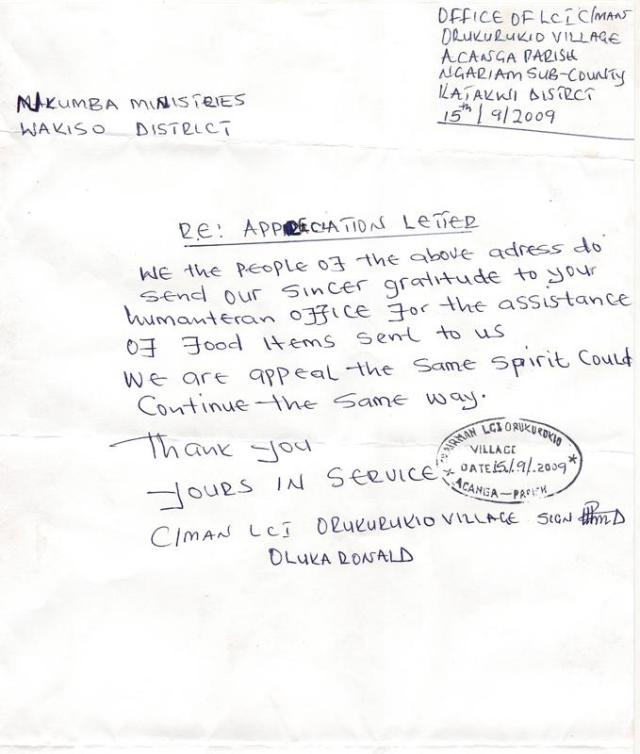 OFFICE OF LCI C/MAN
ORUKURUKIO VILLAGE
ACANGA PARISH
NGARIAM SUB-COUNTY
KATAKWI DISTRCT
15th / 9/2009
NAKUMBA MINISTRIES
WAKISO DISTRICT
RE: APPRECIATION LETTER
WE the PEOPLE OF the above adress do
send our sincer gratitude to your
humanteran OFFICE For the assistance
OF Food Items sent to us
WE are appeal the same spirit Could
Continue the same way.
Thank you
YOURS IN SERVICE
CHAIRMAN LCI ORUKURUKIO
VILLAGE
* DATE 15/9/2009 *
ACANGA - PARISH
C/MAN LCI ORUKURUKIO VILLAGE SIGN
OLUKA RONALD